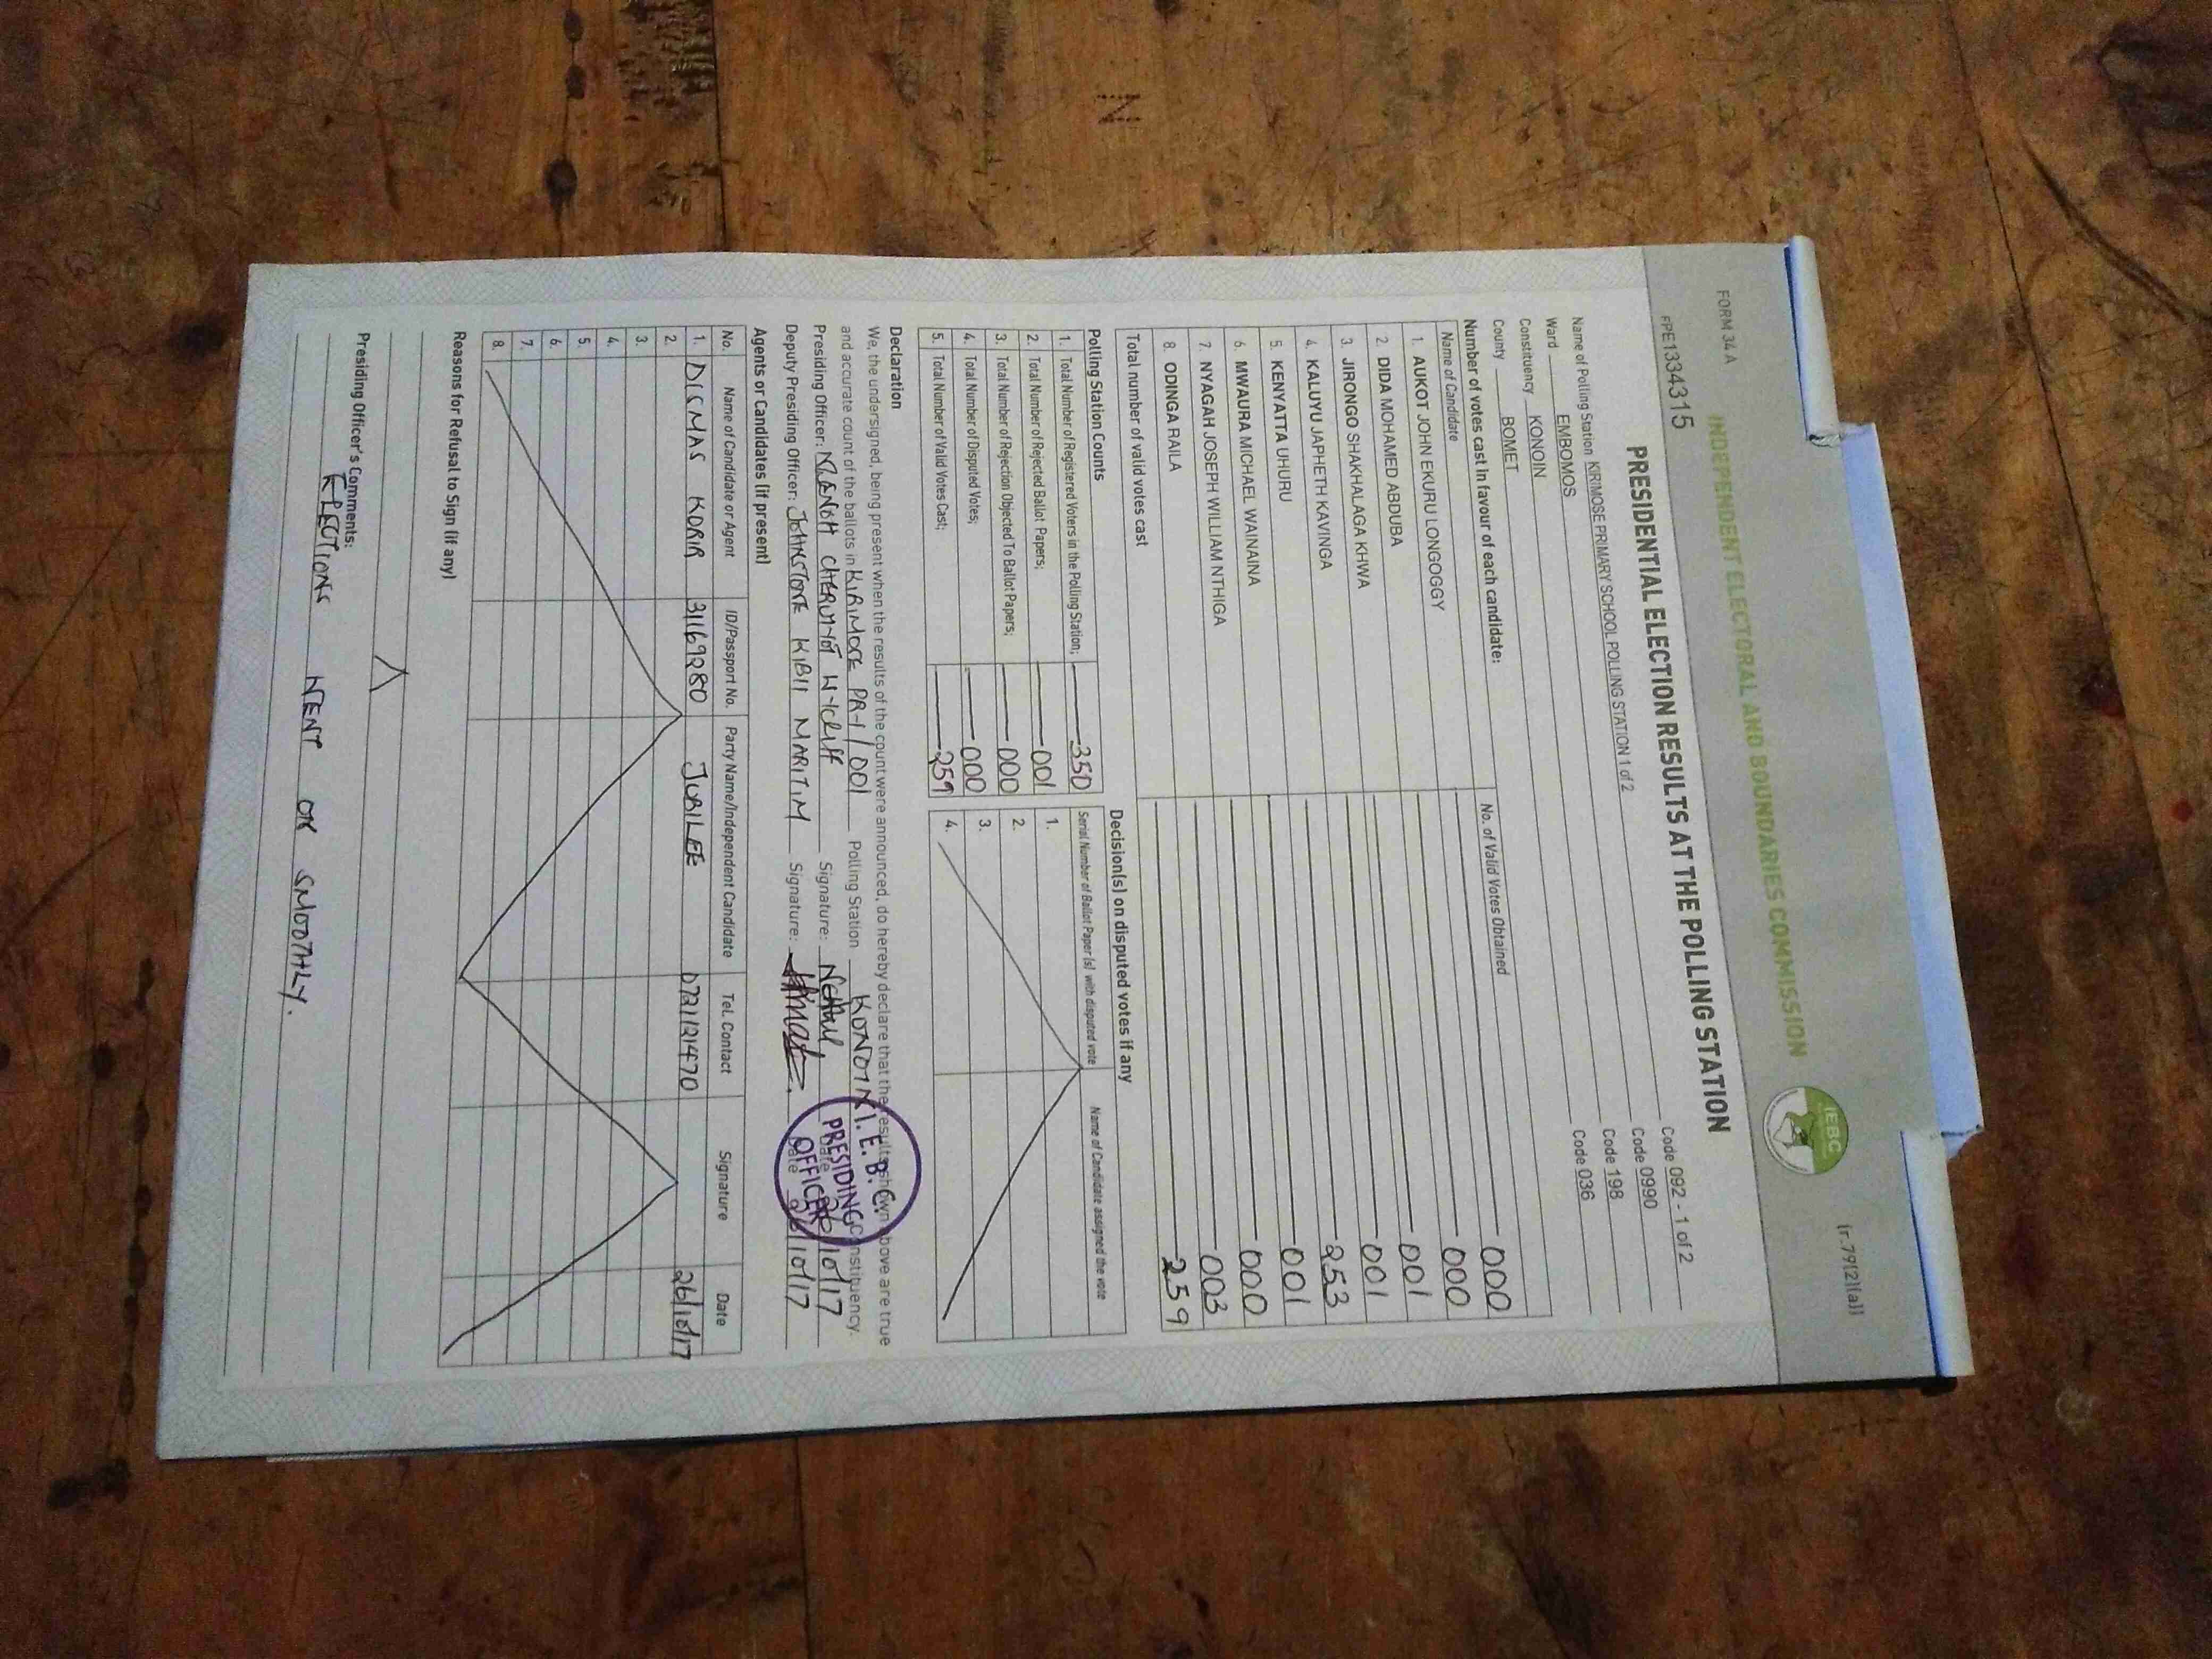 FORM 34 A
(r.79(2)(a))
INDEPENDENT ELECTORAL AND BOUNDARIES COMMISSION
IEBC
FPE1334315
PRESIDENTIAL ELECTION RESULTS AT THE POLLING STATION
Name of Polling Station KIRIMOSE PRIMARY SCHOOL POLLING STATION 1 of 2 Code 092 - 1 of 2
Ward EMBOMOS Code 0990
Constituency KONOIN Code 198
County BOMET Code 036
Number of votes cast in favour of each candidate:
Name of Candidate No. of Valid Votes Obtained
1. AUKOT JOHN EKURU LONGOGGY 000
2. DIDA MOHAMED ABDUBA 000
3. JIRONGO SHAKHALAGA KHWA 001
4. KALUYU JAPHETH KAVINGA 001
5. KENYATTA UHURU 253
6. MWAURA MICHAEL WAINAINA 001
7. NYAGAH JOSEPH WILLIAM NTHIGA 000
8. ODINGA RAILA 003
Total number of valid votes cast 259
Polling Station Counts
1. Total Number of Registered Voters in the Polling Station; 350
2. Total Number of Rejected Ballot Papers; 001
3. Total Number of Rejection Objected To Ballot Papers; 000
4. Total Number of Disputed Votes; 000
5. Total Number of Valid Votes Cast; 259
Decision(s) on disputed votes if any
Serial Number of Ballot Paper (s) with disputed vote Name of Candidate assigned the vote
1.
2.
3.
4.
Declaration
We, the undersigned, being present when the results of the count were announced, do hereby declare that the results shown above are true
and accurate count of the ballots in KIRIMOSE PR-1/001 Polling Station KONOIN Constituency.
Presiding Officer: CHERUIYOT Signature: Date 26/10/17
Deputy Presiding Officer: JOHNSTONE KIBII MARITIM Signature: Date 26/10/17
I. E. B. C.
PRESIDING
OFFICER
Agents or Candidates (if present)
No. Name of Candidate or Agent ID/Passport No. Party Name/Independent Candidate Tel. Contact Signature Date
1. DISMAS KORIR 31169280 JUBILEE 0721121470 26/10/17
2.
3.
4.
5.
6.
7.
8.
Reasons for Refusal to Sign (if any)
Presiding Officer's Comments:
ELECTIONS WENT ON SMOOTHLY.
N